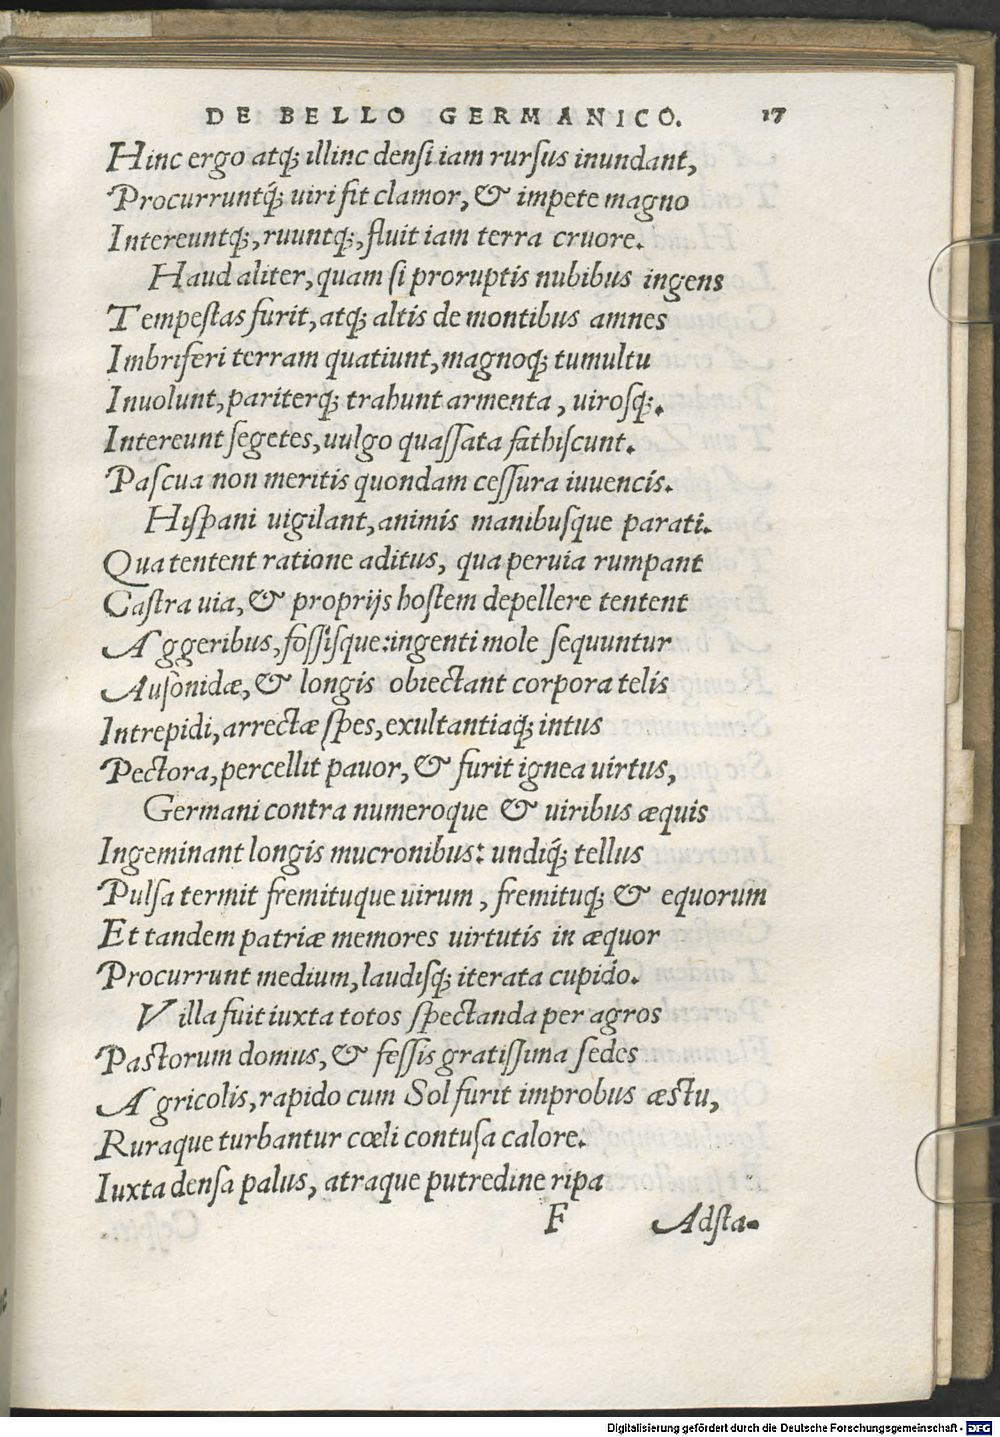 DE BELLO GERMANICO. 17
Hinc ergo atq; illinc densi iam rursus inundant,
Procurruntq́; uiri fit clamor, & impete magno
Intereuntq;, ruuntq;, fluit iam terra cruore.
Haud aliter, quam si proruptis nubibus ingens
Tempestas furit, atq; altis de montibus amnes
Imbriferi terram quatiunt, magnoq; tumultu
Inuolunt, pariterq; trahunt armenta, uirosq;.
Intereunt segetes, uulgo quassata fathiscunt.
Pascua non meritis quondam cessura iuuencis.
Hispani uigilant, animis manibusque parati.
Qua tentent ratione aditus, qua peruia rumpant
Castra uia, & proprijs hostem depellere tentent
Aggeribus, fossisque: ingenti mole sequuntur
Ausonidæ, & longis obiectant corpora telis
Intrepidi, arrectæ spes, exultantiaq́; intus
Pectora, percellit pauor, & furit ignea uirtus,
Germani contra numeroque & uiribus æquis
Ingeminant longis mucronibus: undiq́; tellus
Pulsa termit fremituque uirum, fremituq; & equorum
Et tandem patriæ memores uirtutis in æquor
Procurrunt medium, laudisq; iterata cupido.
Villa fuit iuxta totos spectanda per agros
Pastorum domus, & fessis gratissima sedes
Agricolis, rapido cum Sol furit improbus æstu,
Ruraque turbantur cœli contusa calore.
Iuxta densa palus, atraque putredine ripa
F Adsta-
Digitalisierung gefördert durch die Deutsche Forschungsgemeinschaft - DFG